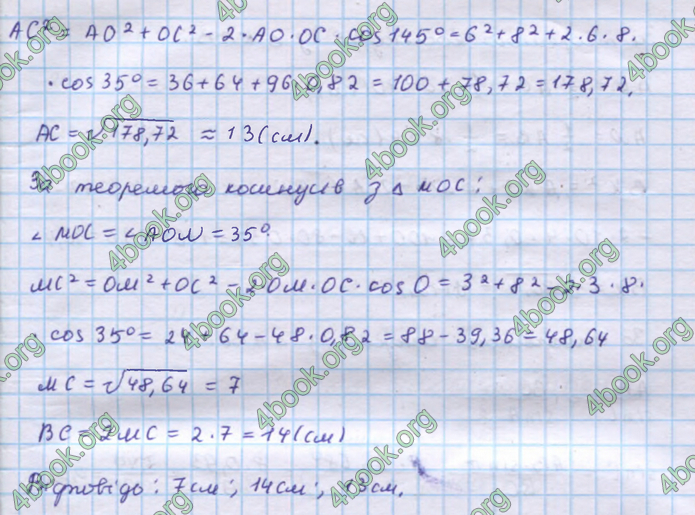 AC² = AO² + OC² - 2·AO·OC·cos 145° = 6² + 8² + 2·6·8·
·cos 35° = 36 + 64 + 96·0,82 = 100 + 78,72 = 178,72.
AC = √178,72 ≈ 13 (см).
За теоремою косинусів з △ MOC:
∠ MOC = ∠ AON = 35°.
MC² = OM² + OC² - 2OM·OC·cos O = 3² + 8² - 2·3·8·
·cos 35° = 24 + 64 - 48·0,82 = 88 - 39,36 = 48,64
MC = √48,64 = 7
BC = 2MC = 2·7 = 14 (см)
Відповідь: 7см; 14см; 13см.
4book.org